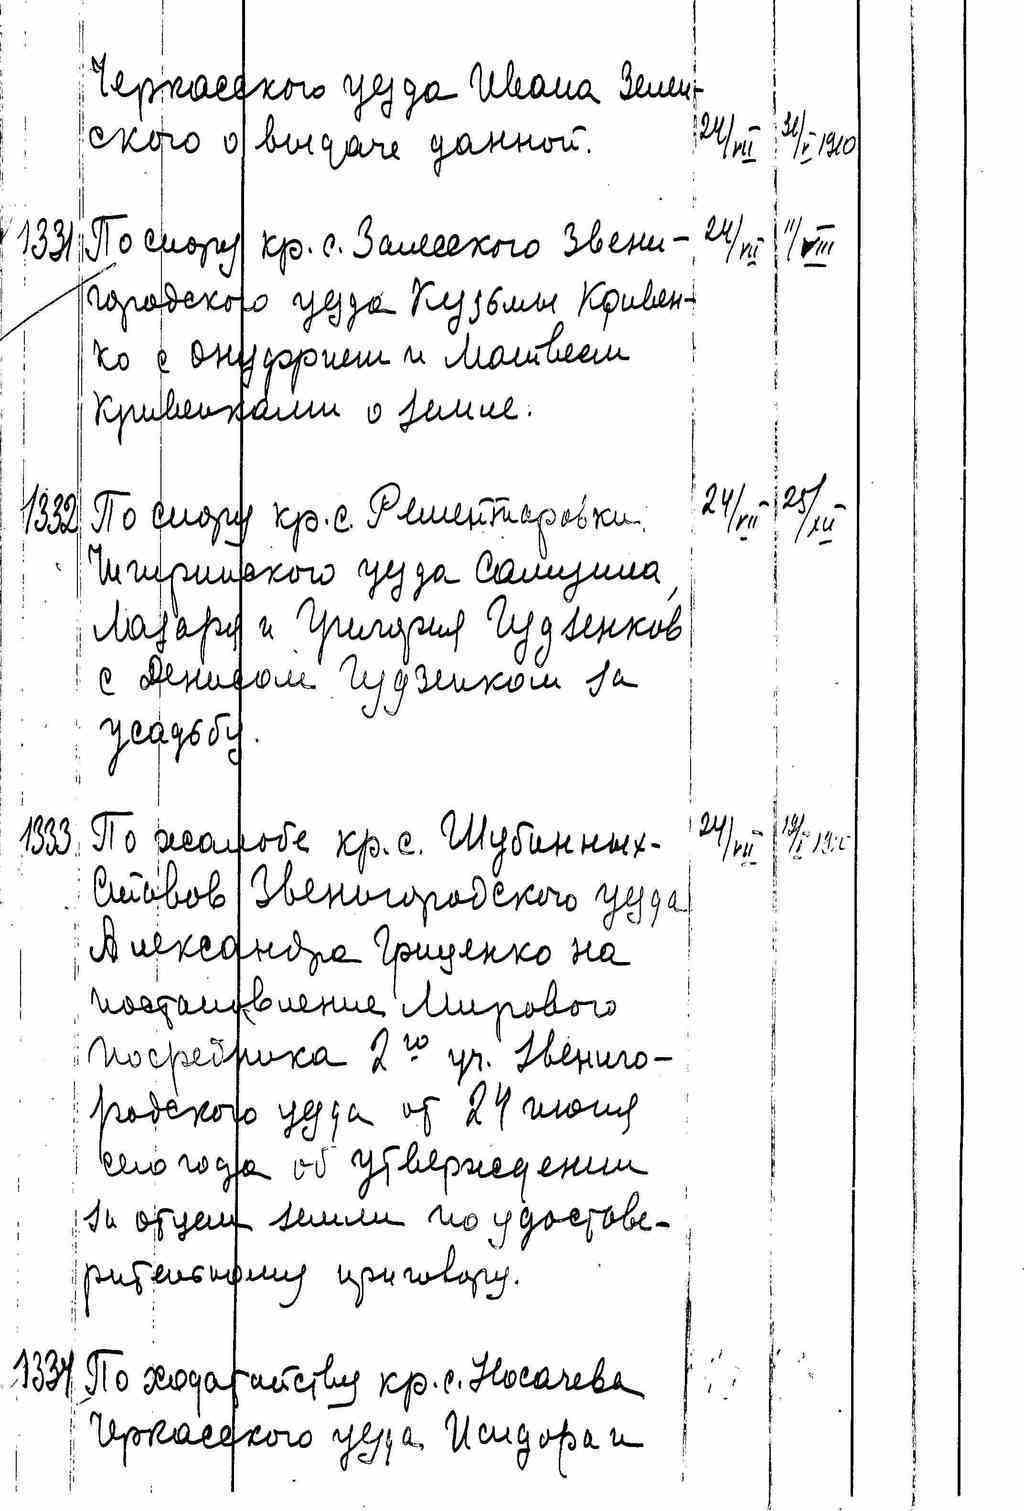 Черкасского уезда Ивана Зелен-
ского о выдаче данной. 24/VII 1910
1331 По спору кр. с. Залесского Звени- 24/VII 11/VIII
городского уезда Кузьмы Кривен-
ко с Онуфрием и Матвеем
Кривенками о земле.
1332 По спору кр. с. Рементаровки 24/VII 25/XII
Чигиринского уезда Самуила,
Лазаря и Григория Гудзенков
с Денисом Гудзенком за
усадьбу.
1333 По жалобе кр. с. Шубинных- 24/VII
Ставов Звенигородского уезда
Александра Гриценко на
постановление Мирового
посредника 2го уч. Звениго-
родского уезда от 24 июня
сего года об утверждении
за отцем земли по удостове-
рительному приговору.
1334 По ходатайству кр. с. Носачева
Черкасского уезда Исидора и